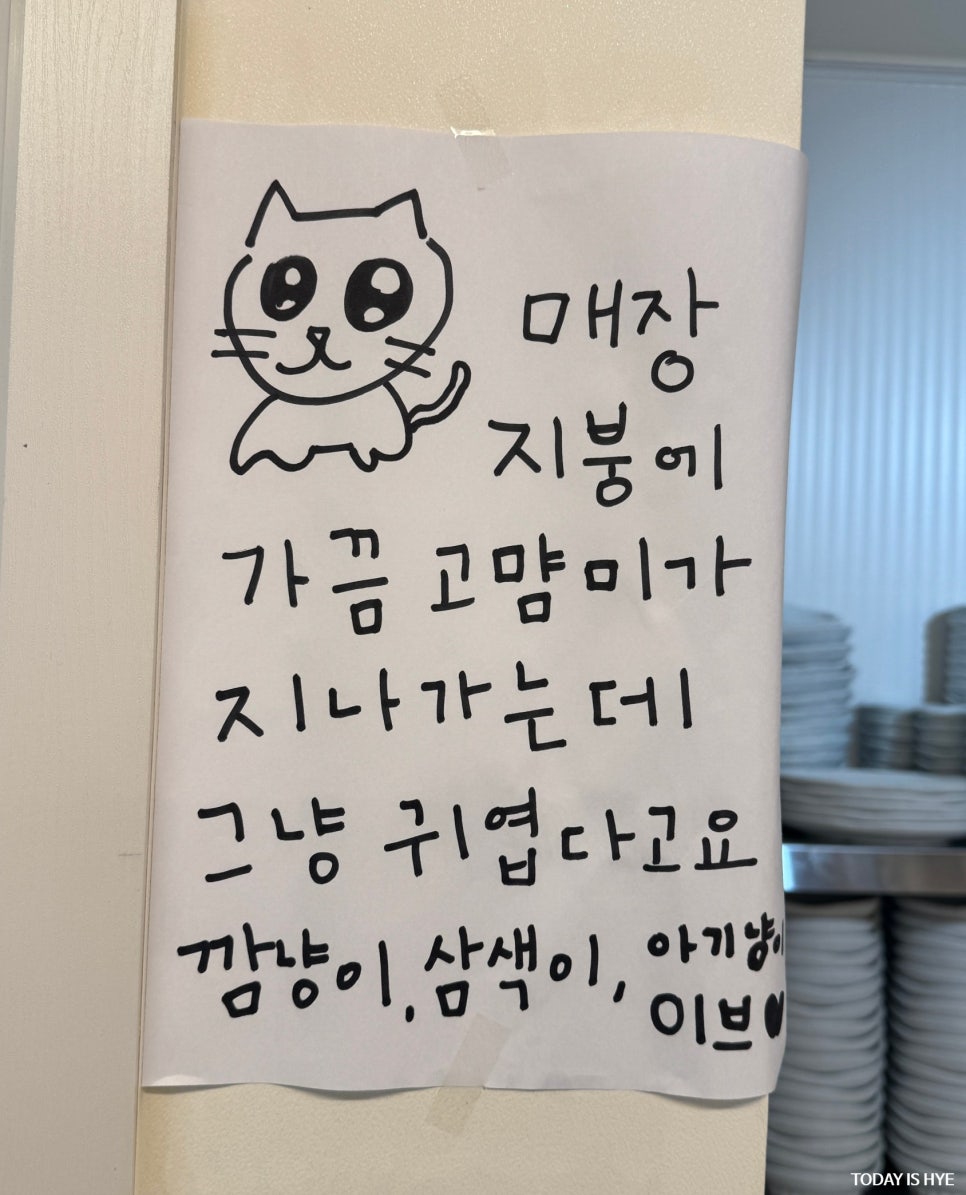 매장
지붕에
가끔 고먐미가
지나가는데
그냥 귀엽다고요
깜냥이, 삼색이, 아기냥이
이브
TODAY IS HYE